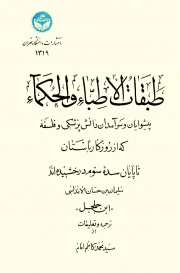 انتشارات دانشگاه تهران
۱۳۱۹
طبقات الاطباء والحکماء
پیشوایان و سرآمدان دانش پزشکی و فلسفه
که از روزگار باستان
تا پایان سدهٔ سوم درخشیده‌اند
سلیمان بن حسان الاندلسی
ابن جلجل
ترجمه و تعلیقات
از
سید محمد کاظم امام